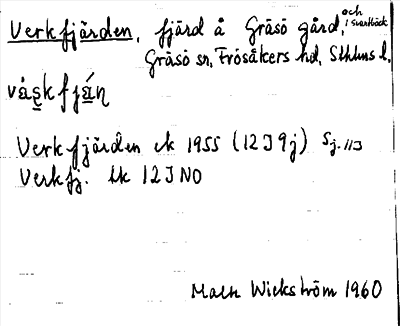 Verkfjärden, fjärd å Gräsö gård, och i Svartbäck
Gräsö sn, Frösåkers hd, Sthlms l.
Verkfjärden ek 1955 (12I9j) Sj. 113
Verkfj. tk 12I NO
Mats Wickström 1960